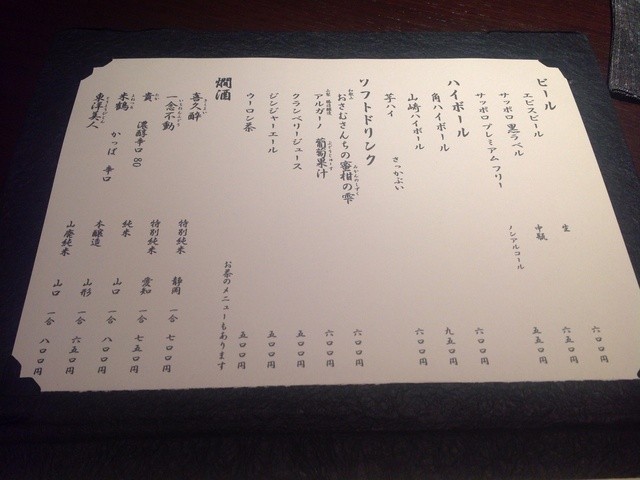 ビール
エビスビール 生 六〇〇円
サッポロ黒ラベル 中瓶 六五〇円
サッポロプレミアムフリー ノンアルコール 五五〇円
ハイボール
角ハイボール 六〇〇円
山崎ハイボール 九五〇円
芋ハイ さつかぶい 六〇〇円
ソフトドリンク
おさむさんちの蜜柑の雫 六〇〇円
アルガーノ 葡萄果汁 六〇〇円
クランベリージュース 五五〇円
ジンジャーエール 五五〇円
ウーロン茶 五〇〇円
お茶のメニューもあります
燗酒
喜久酔 特別純米 静岡 一合 七〇〇円
一念不動 特別純米 愛知 一合 七五〇円
貴 濃醇辛口80 純米 山口 一合 八〇〇円
米鶴 かっぱ 辛口 本醸造 山形 一合 六五〇円
東洋美人 山廃純米 山口 一合 八〇〇円